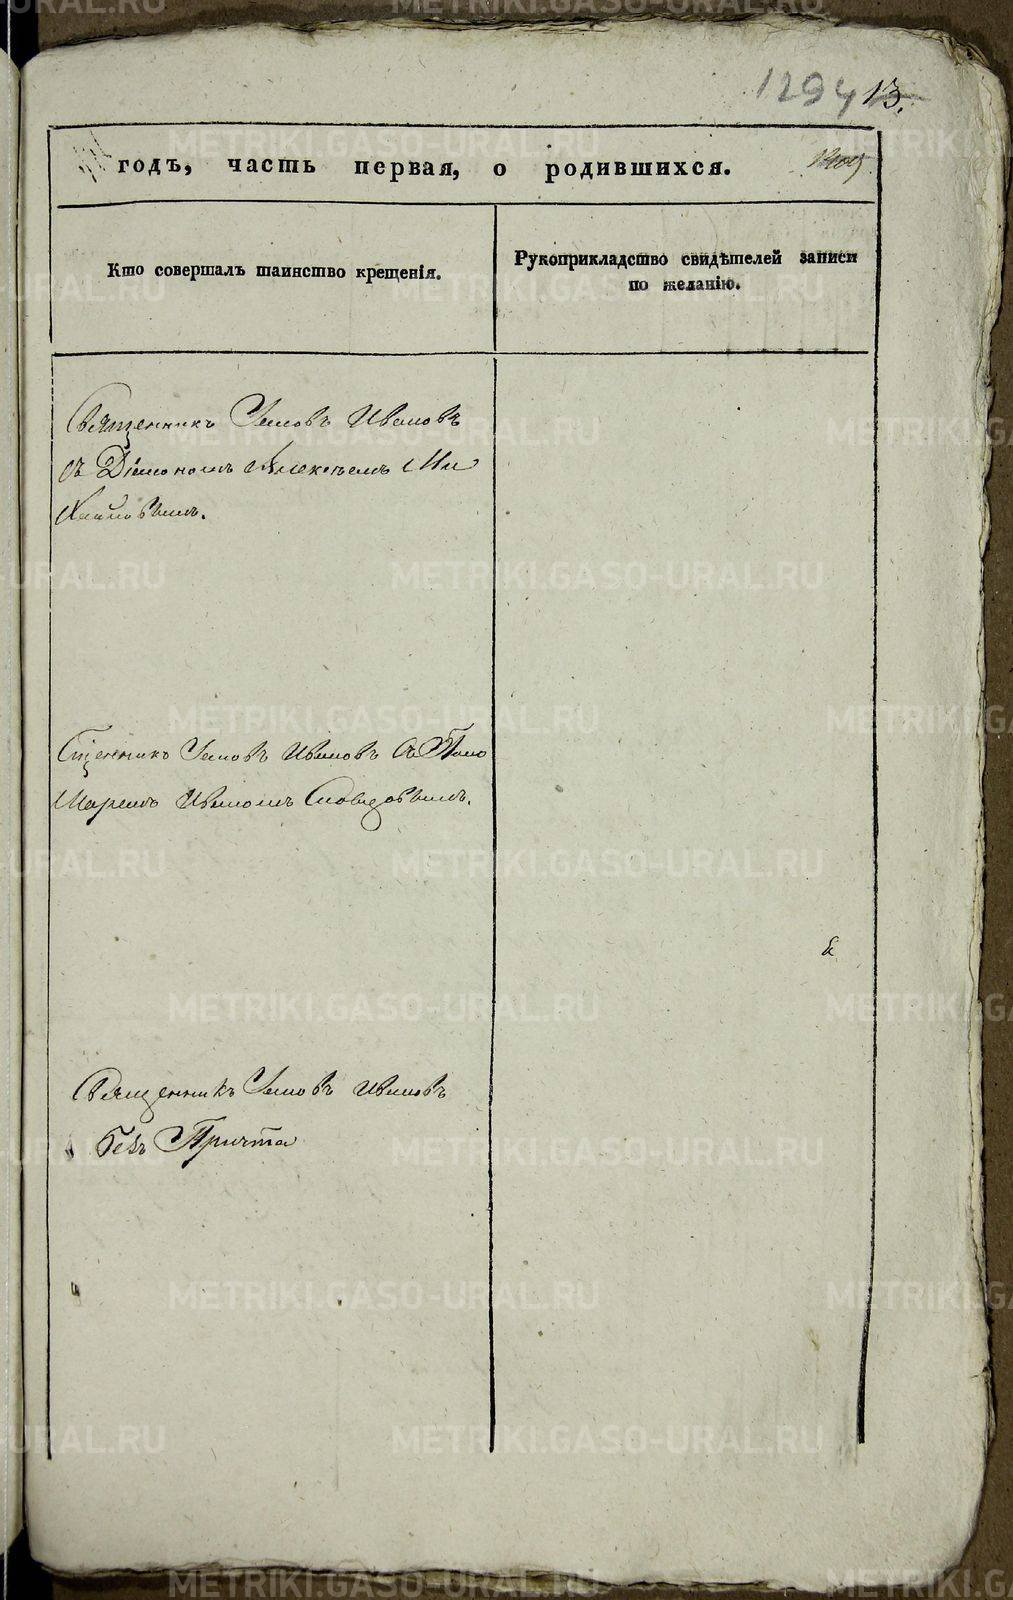 1294 13.
годъ, часть первая, о родившихся.
Кто совершалъ таинство крещенія.
Рукоприкладство свидѣтелей записи
по желанію.
Священникъ Іаковъ Ивановъ
съ Діакономъ Алексѣемъ Ми
хайловымъ.
Сщенникъ Іаковъ Ивановъ съ Поно
маремъ Иваномъ
Священникъ Іаковъ Ивановъ
безъ Причта
METRIKI.GASO-URAL.RU